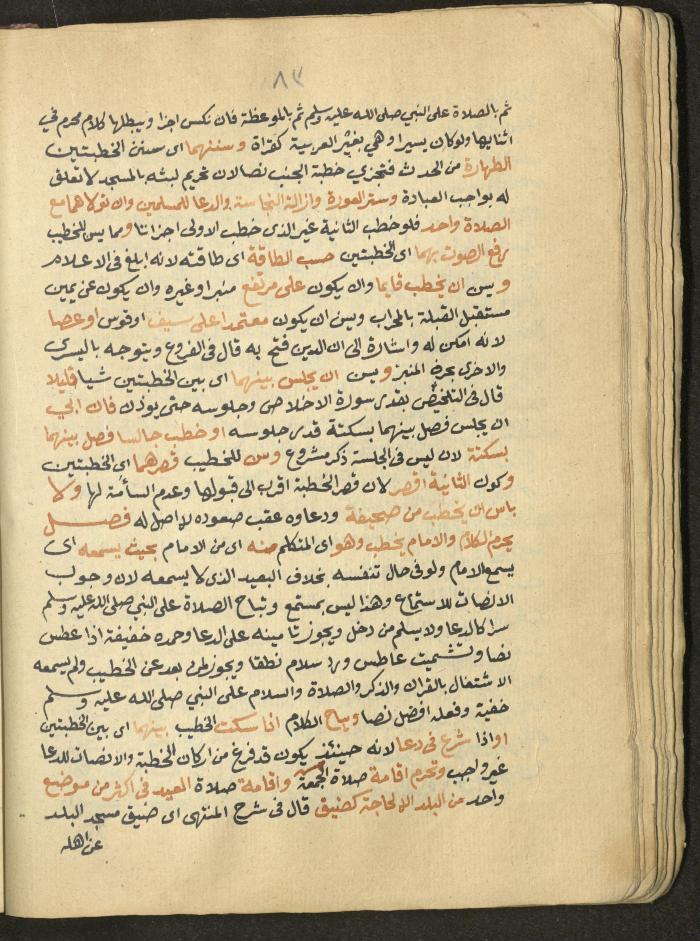 ٨٣
ثم بالصلاة على النبي صلى الله عليه وسلم ثم بالموعظة فان نكس اجزا ويبطلها كلام محرم في
اثنايها ولو كان يسيرا وهي بغير العربية كقراة وسننهما اى سنن الخطبتين
الطهارة من الحدث فتجزي خطبة الجنب نصا لان تحريم لبثه بالمسجد لا تعلق
له بواجب العبادة وستر العورة وازالة النجاسة والدعا للمسلمين وان تولاهما مع
الصلاة واحد فلو خطب الثانية غير الذى خطب الاولى اجزاتا ومما يسن للخطيب
رفع الصوت بهما اى الخطبتين حسب الطاقة اى طاقته لانه ابلغ فى الاعلام
ويسن ان يخطب قايما وان يكون على مرتفع منبر او غيره وان يكون عن يمين
مستقبل القبلة بالمحراب ويسن ان يكون معتمدا على سيف او قوس او عصا
لانه امكن له واشارة الى ان الدين فتح به قال فى الفروع ويتوجه باليسرى
والاخرى بحرف المنبر ويسن ان يجلس بينهما اى بين الخطبتين شيا قليلا
قال فى التلخيص بقدر سورة الاخلاص وجلوسه حتى يوذن فان ابى
ان يجلس فصل بينهما بسكتة قدر جلوسه او خطب جالسا فصل بينهما
بسكتة لان ليس فى الجلسة ذكر مشروع وسن للخطيب قصرهما اى الخطبتين
وكون الثانية اقصر لان قصر الخطبة اقرب الى قبولها وعدم السأمة لها ولا
باس ان يخطب من صحيفة ودعاوه عقب صعوده لا اصل له فصل
يحرم الكلام والامام يخطب وهو اى المتكلم منه اى من الامام بحيث يسمعه اى
يسمع الامام ولو فى حال تنفسه بخلاف البعيد الذى لا يسمعه لان وجوب
الانصات للاستماع وهذا ليس بمستمع وتباح الصلاة على النبي صلى الله عليه وسلم
سرا كالدعا ولا يسلم من دخل ويجوز تامينه على الدعا وحمده خفيفة اذا عطس
نصا وتشميت عاطس ورد سلام نطقا ويجوز لمن بعد عن الخطيب ولم يسمعه
الاشتغال بالقران والذكر والصلاة والسلام على النبي صلى الله عليه وسلم
خفية وفعله افضل نصا ويباح الكلام اذا سكت الخطيب بينهما اى بين الخطبتين
او اذا شرع فى دعا لانه حينئذ يكون قد فرغ من اركان الخطبة والانصات للدعا
غير واجب وتحرم اقامة صلاة الجمعة واقامة صلاة العيد فى اكثر من موضع
واحد من البلد الا لحاجة كضيق قال فى شرح المنتهى اى ضيق مسجد البلد
عن اهله